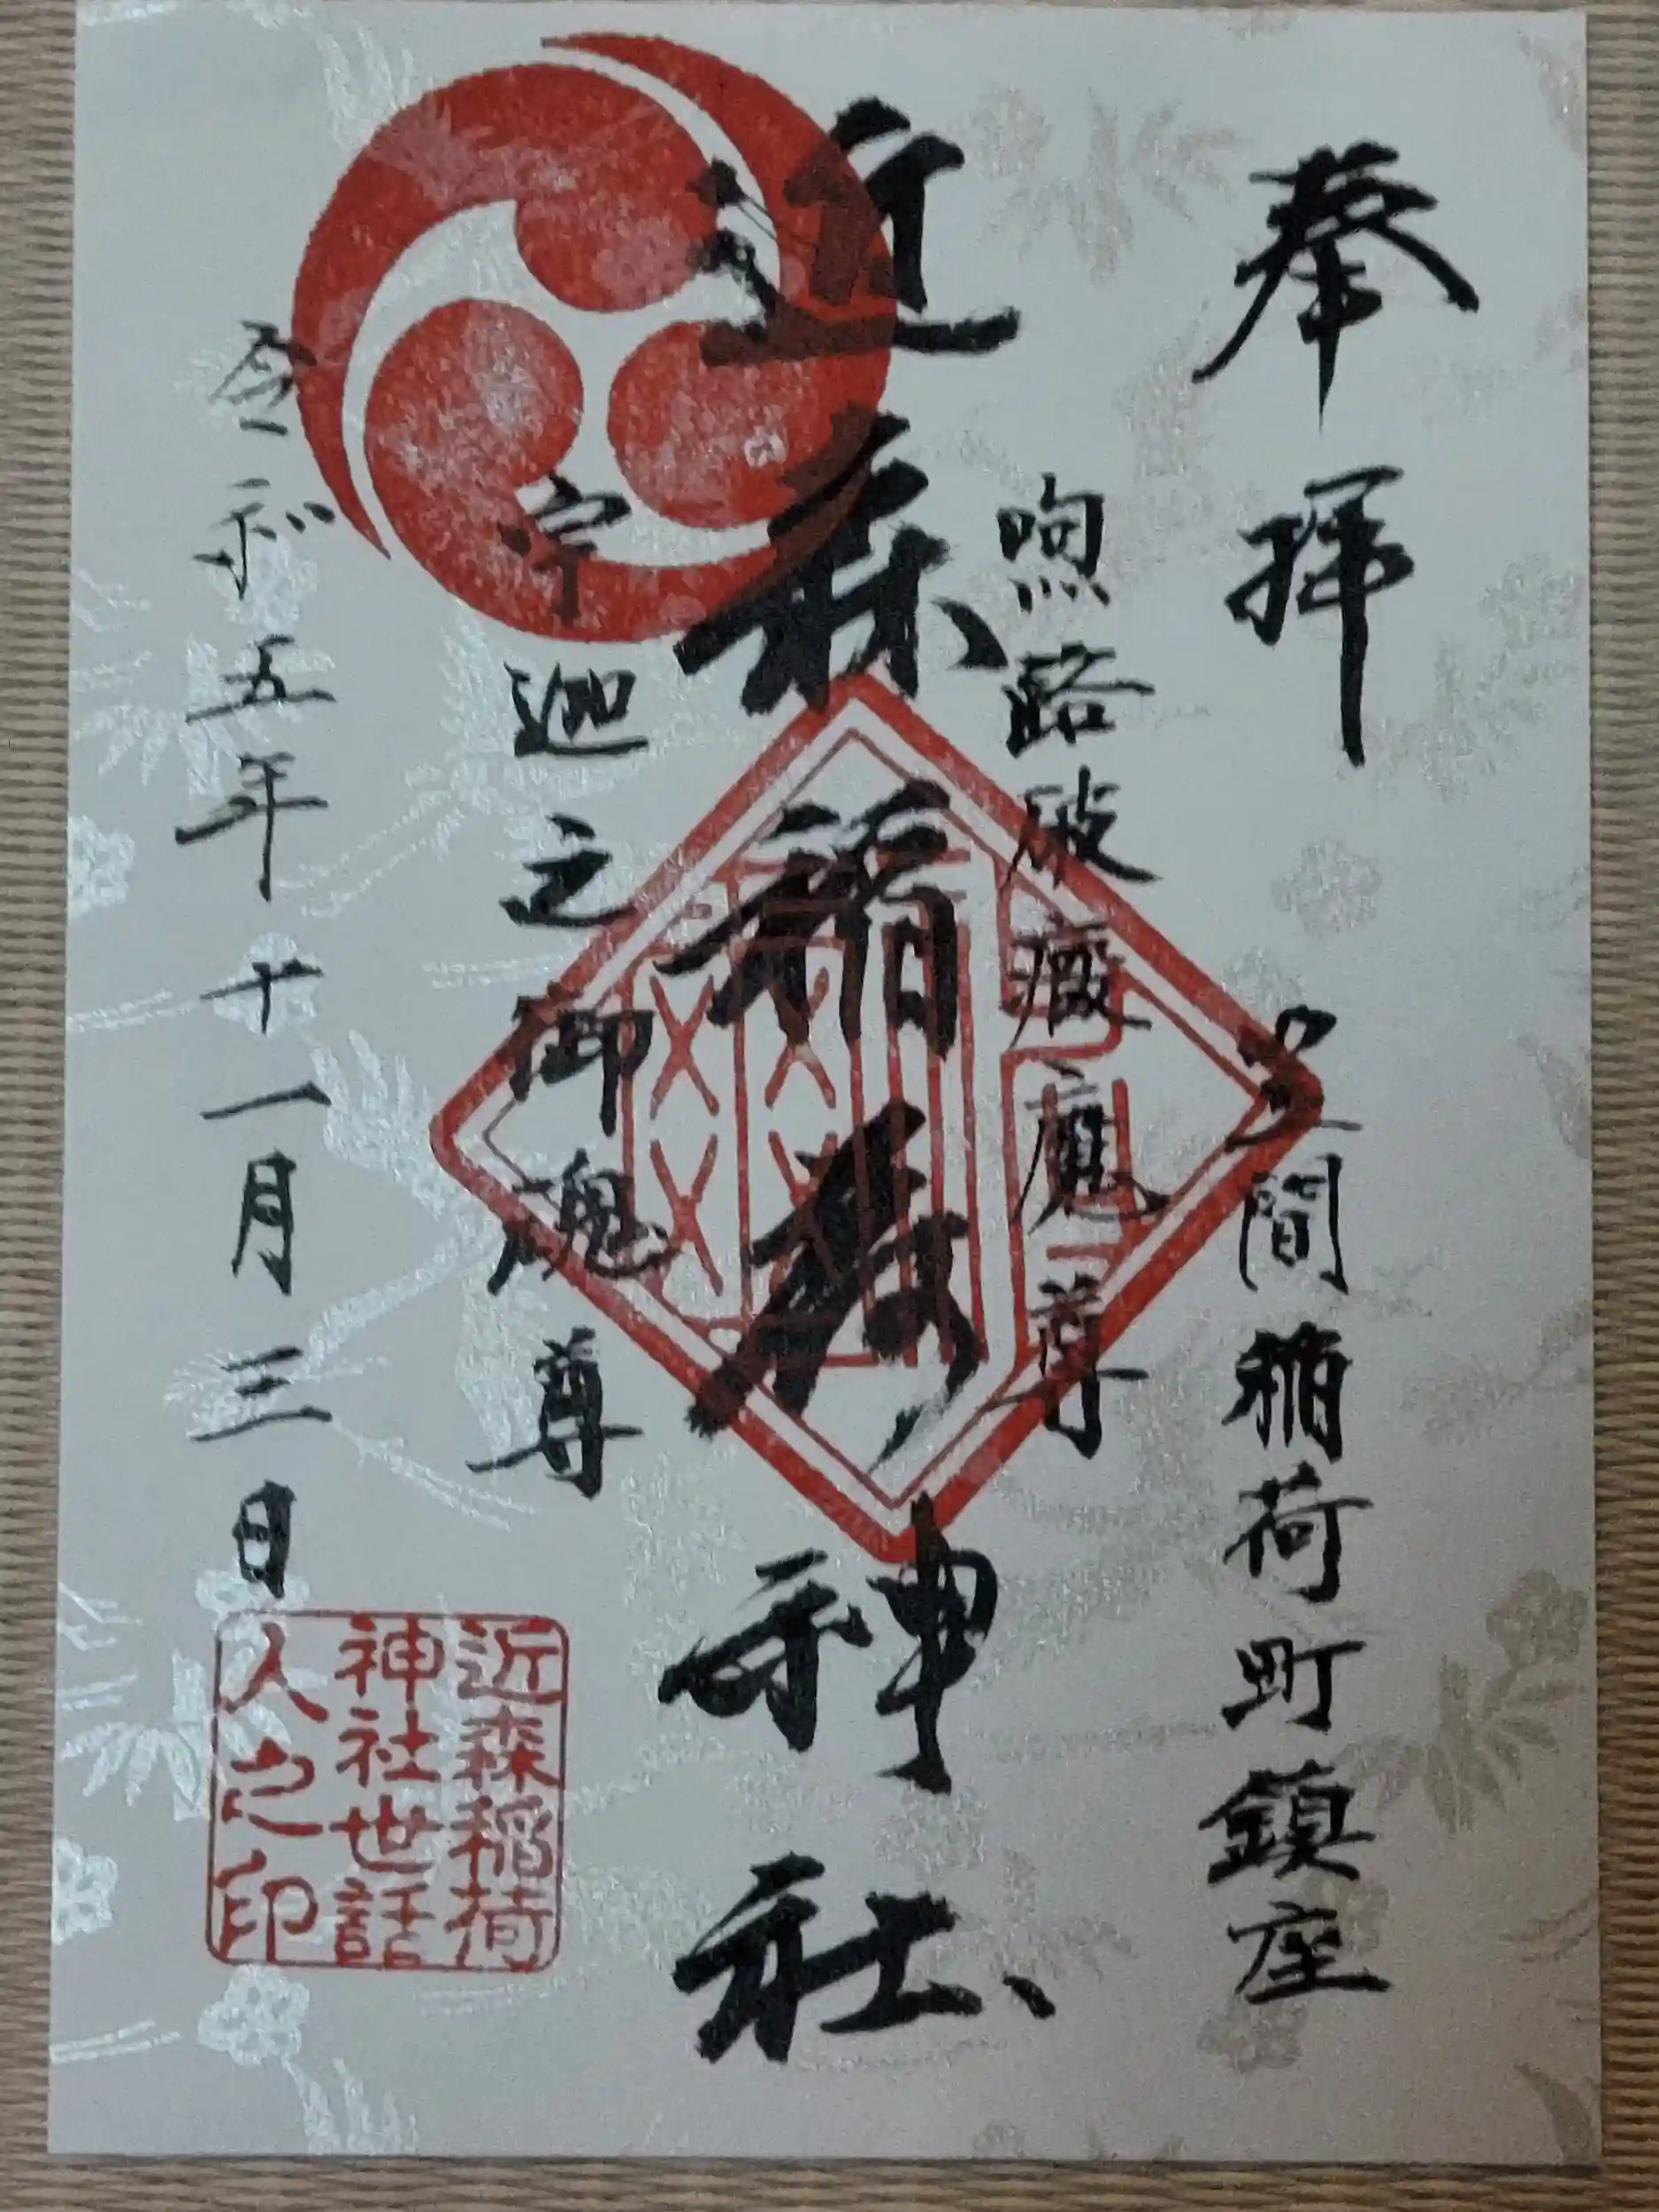 奉拝
間稲荷町鎮座
魔尊
近森稲荷神社
宇迦之御魂尊
令和五年十一月三日
近森稲荷
神社世話
人之印